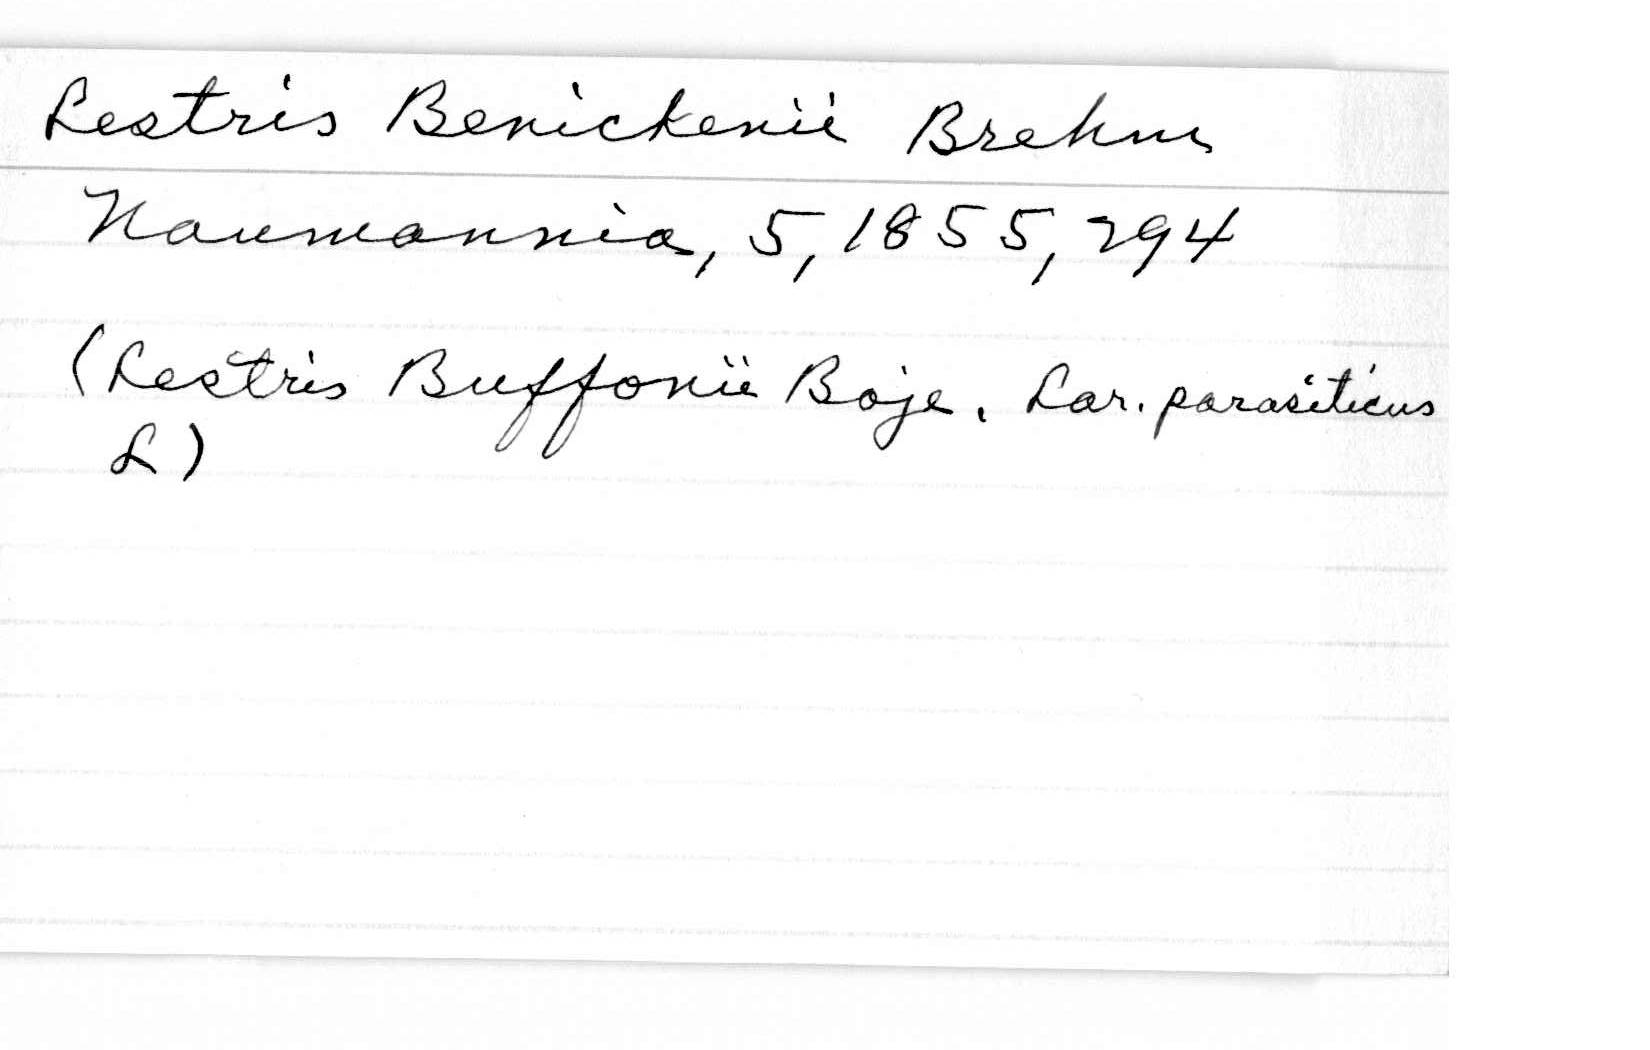 Lestris Benickenii Brehm
Naumannia, 5, 1855, 294
(Lestris Buffonii Boje. Lar. parasiticus
L)